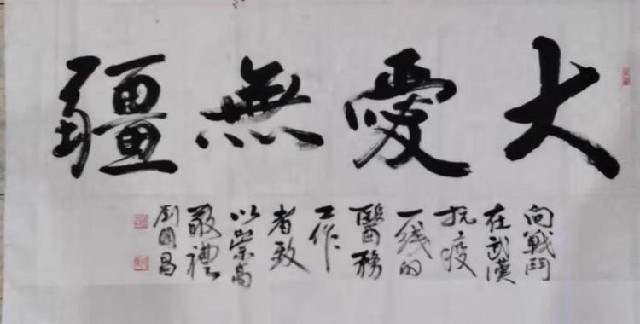 大愛無疆
向戰鬥
在武漢
抗疫
一线的
醫務
工作
者致
以崇高
敬禮
劉國昌